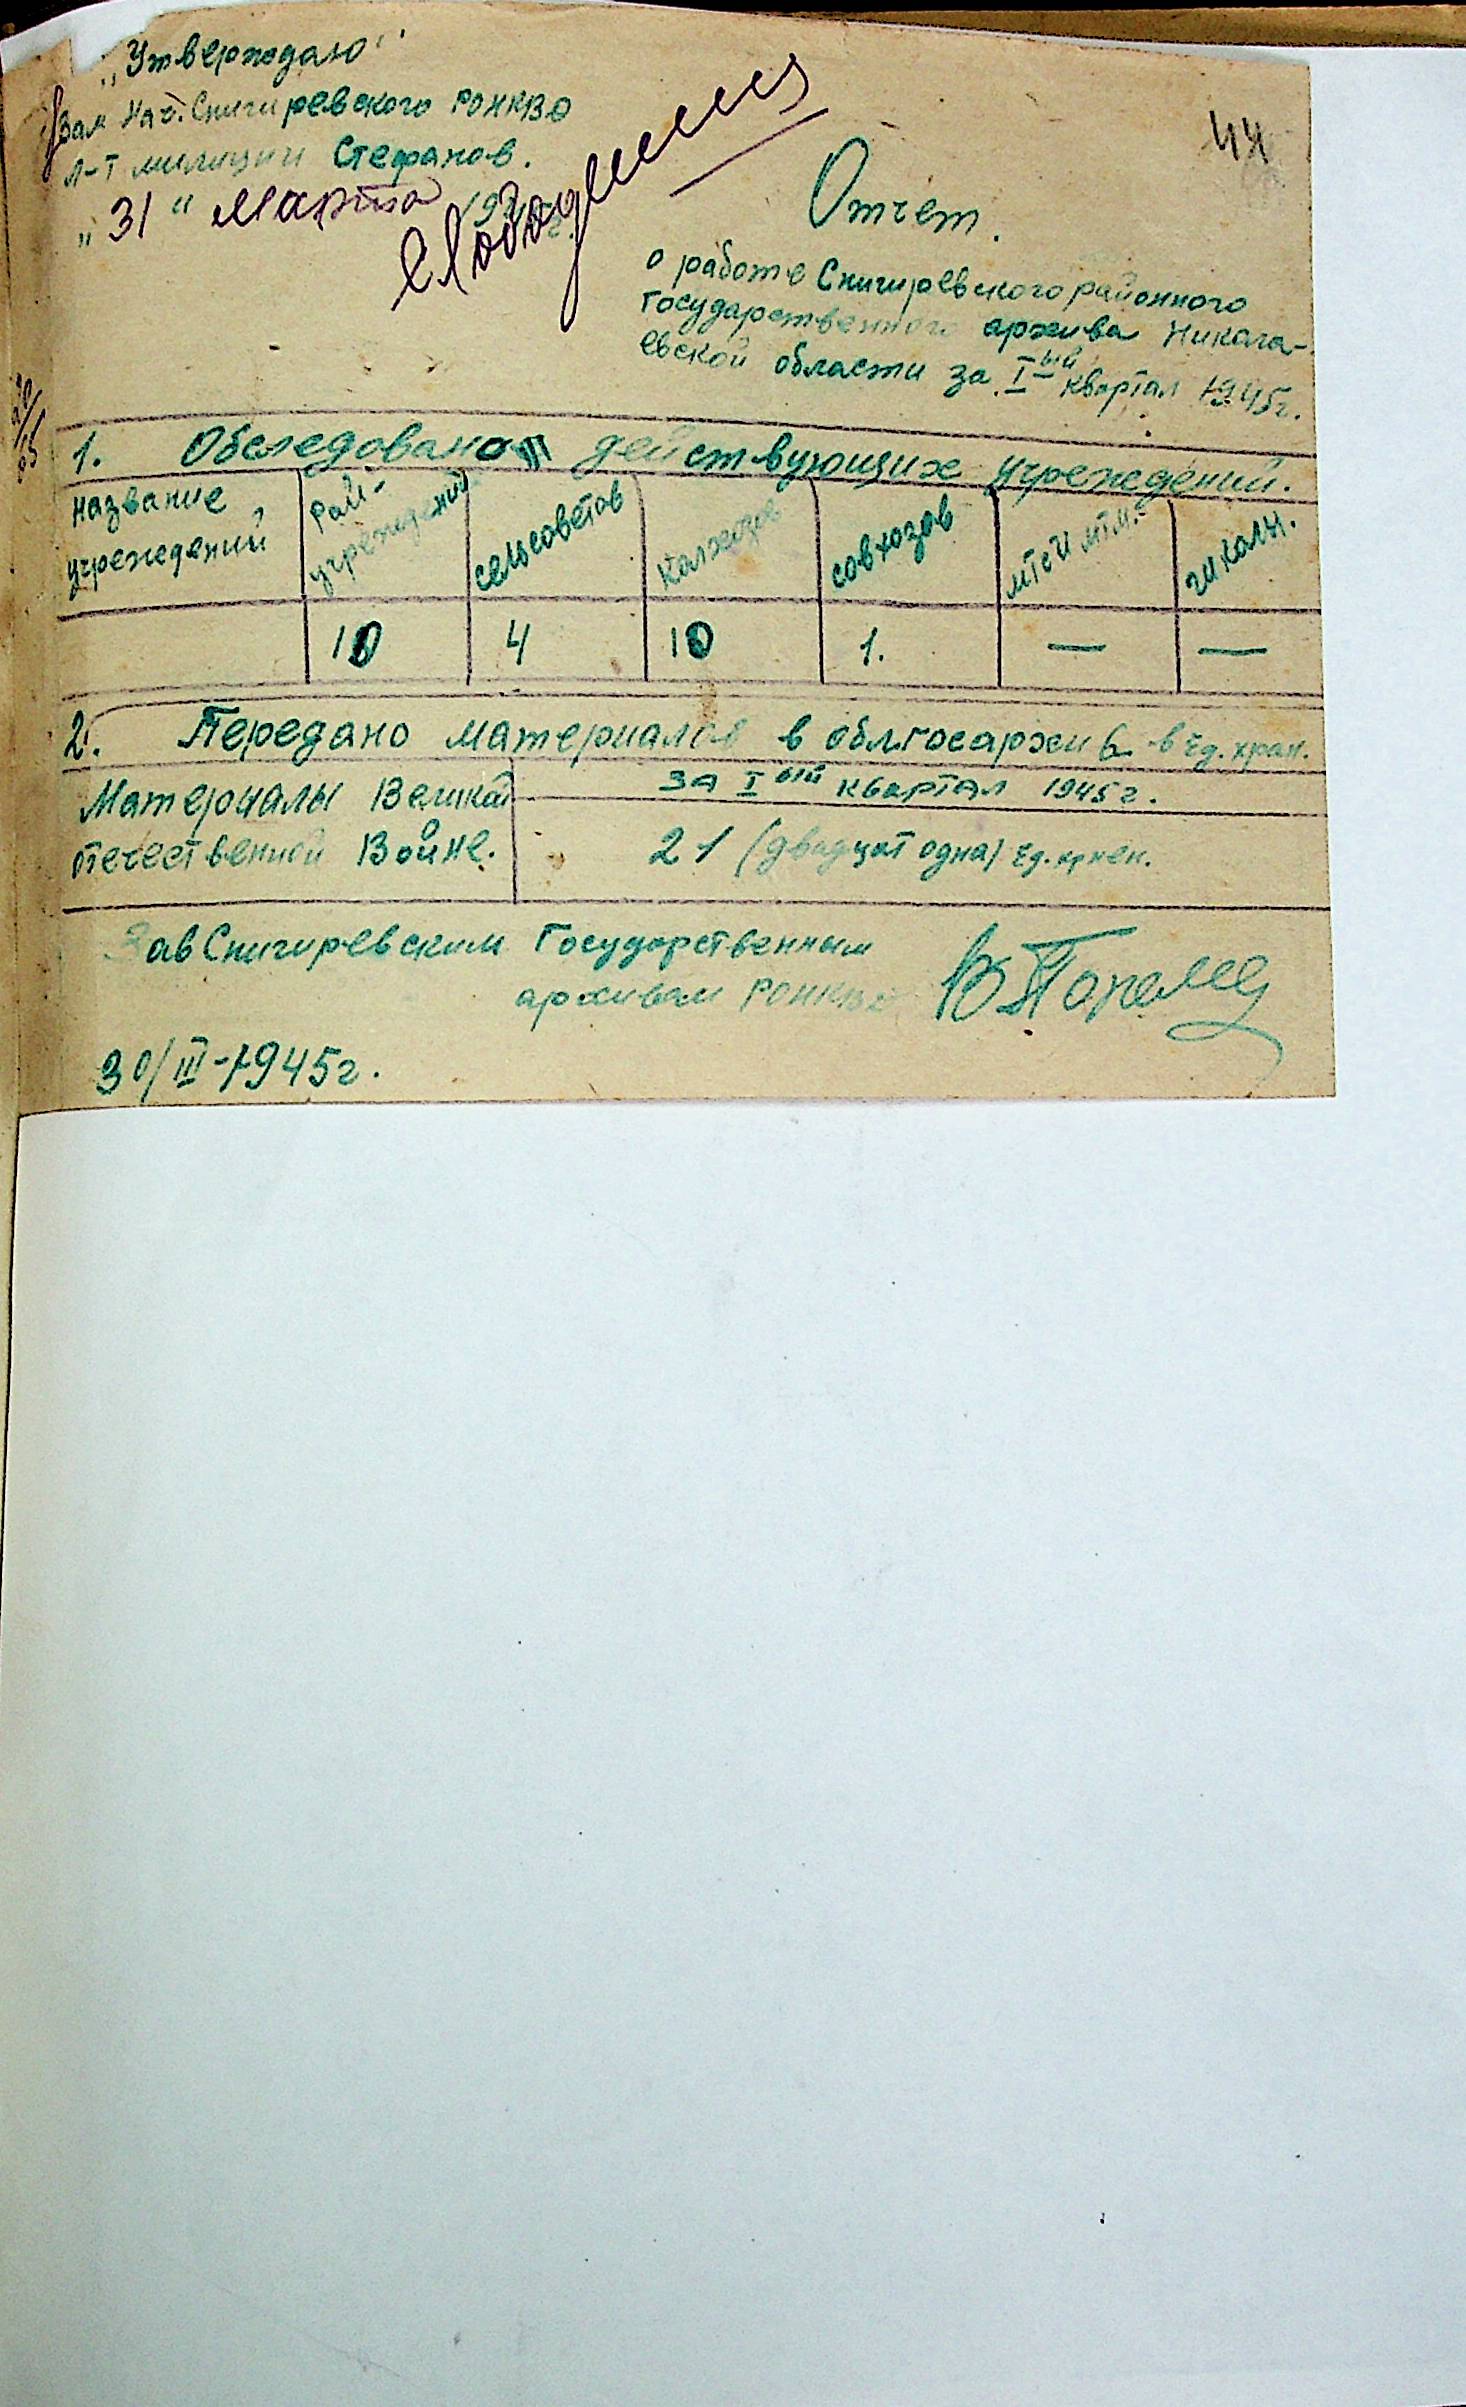 „Утверждаю"
Зам Нач. Снигиревского РОНКВД
л-т милиции Стефанов.
„31" Марта
44
Отчет.
о работе Снигиревского районного
Государственного архива Никола-
евской области за I-ый квартал 1945г.
1. Обследовано действующих учреждений.
название учреждений
рай-учреждений
сельсоветов
колхозов
совхозов
МТС и МТМ.
школы.
10 4 10 1. — —
2. Передано материалов в облгосархив в ед. хран.
Материалы Великой
отечественной Войне.
за I ый квартал 1945г.
21 (двадцат одна) ед. хрнен.
Зав Снигиревским Государственным
архивам РОНКВД
30/III-1945г.